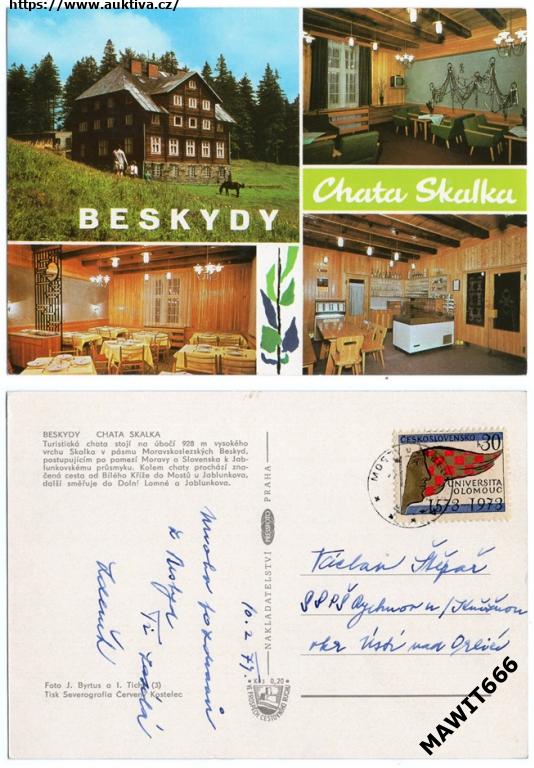 https://www.auktiva.cz/
BESKYDY
Chata Skalka
BESKYDY CHATA SKALKA
Turistická chata stojí na úbočí 928 m vysokého
vrchu Skalka v pásmu Moravskoslezských Beskyd,
postupujícím po pomezí Moravy a Slovenska k Jab-
lunkovskému průsmyku. Kolem chaty prochází zna-
čená cesta od Bílého Kříže do Mostů u Jablunkova,
další směřuje do Dolní Lomné a Jablunkova.
Mnoho pozdravů
z Beskyd
Ti
Zdeněk
10. 2. 77.
Foto J. Byrtus a I. Tichý (3)
Tisk Severografia Červený Kostelec
NAKLADATELSTVÍ PRESSFOTO PRAHA
Kčs 0,20
VE PROSPĚCH CESTOVNÍHO RUCHU
ČESKOSLOVENSKO
30
UNIVERSITA
OLOMOUC
1573-1973
Václav Štěpář
SPPŠ Rychnov n/Kněžnou
okr Ústí nad Orlicí
MAWIT666